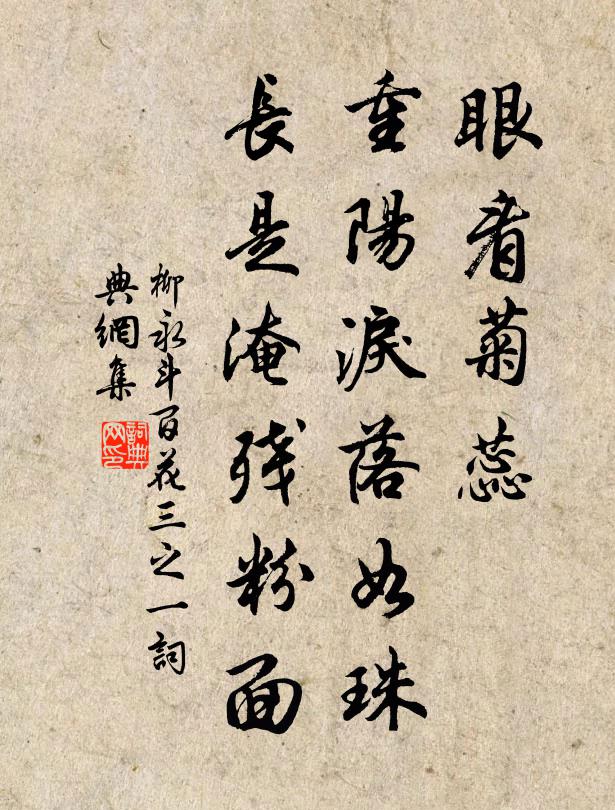 眼看菊蕊
重陽淚落如珠
長是淹残粉面
柳永斗百花三之一詞
典網集
詞典
网印